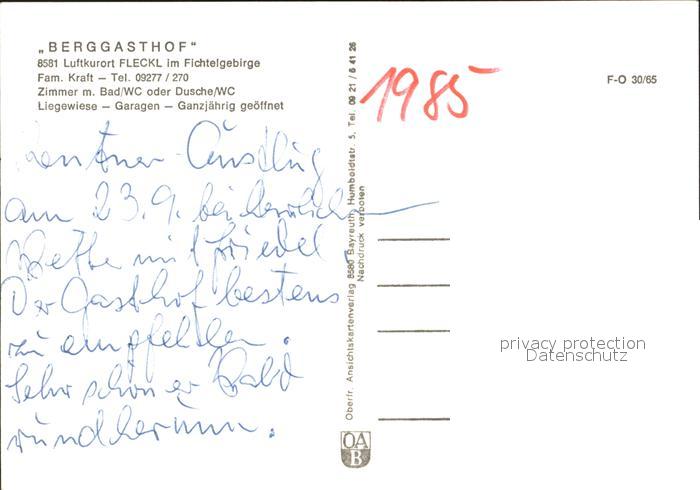 „BERGGASTHOF"
8581 Luftkurort FLECKL im Fichtelgebirge
Fam. Kraft — Tel. 09277 / 270
Zimmer m. Bad/WC oder Dusche/WC
Liegewiese — Garagen — Ganzjährig geöffnet
Rentner-Ausflug
am 23.9. bei herrlichem
Wetter mit Friedel
Der Gasthof bestens
zu empfehlen.
Sehr schöner Wald
rundherum.
Oberfr. Ansichtskartenverlag 8580 Bayreuth, Humboldtstr. 5, Tel. 09 21 / 6 41 26
Nachdruck verboten
1985
F-O 30/65
privacy protection
Datenschutz
OA
B